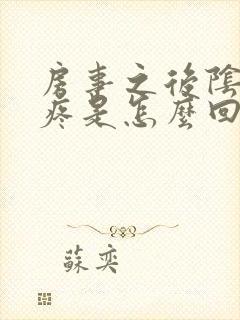 房事之後陰
疼是怎麼回
蘇奕